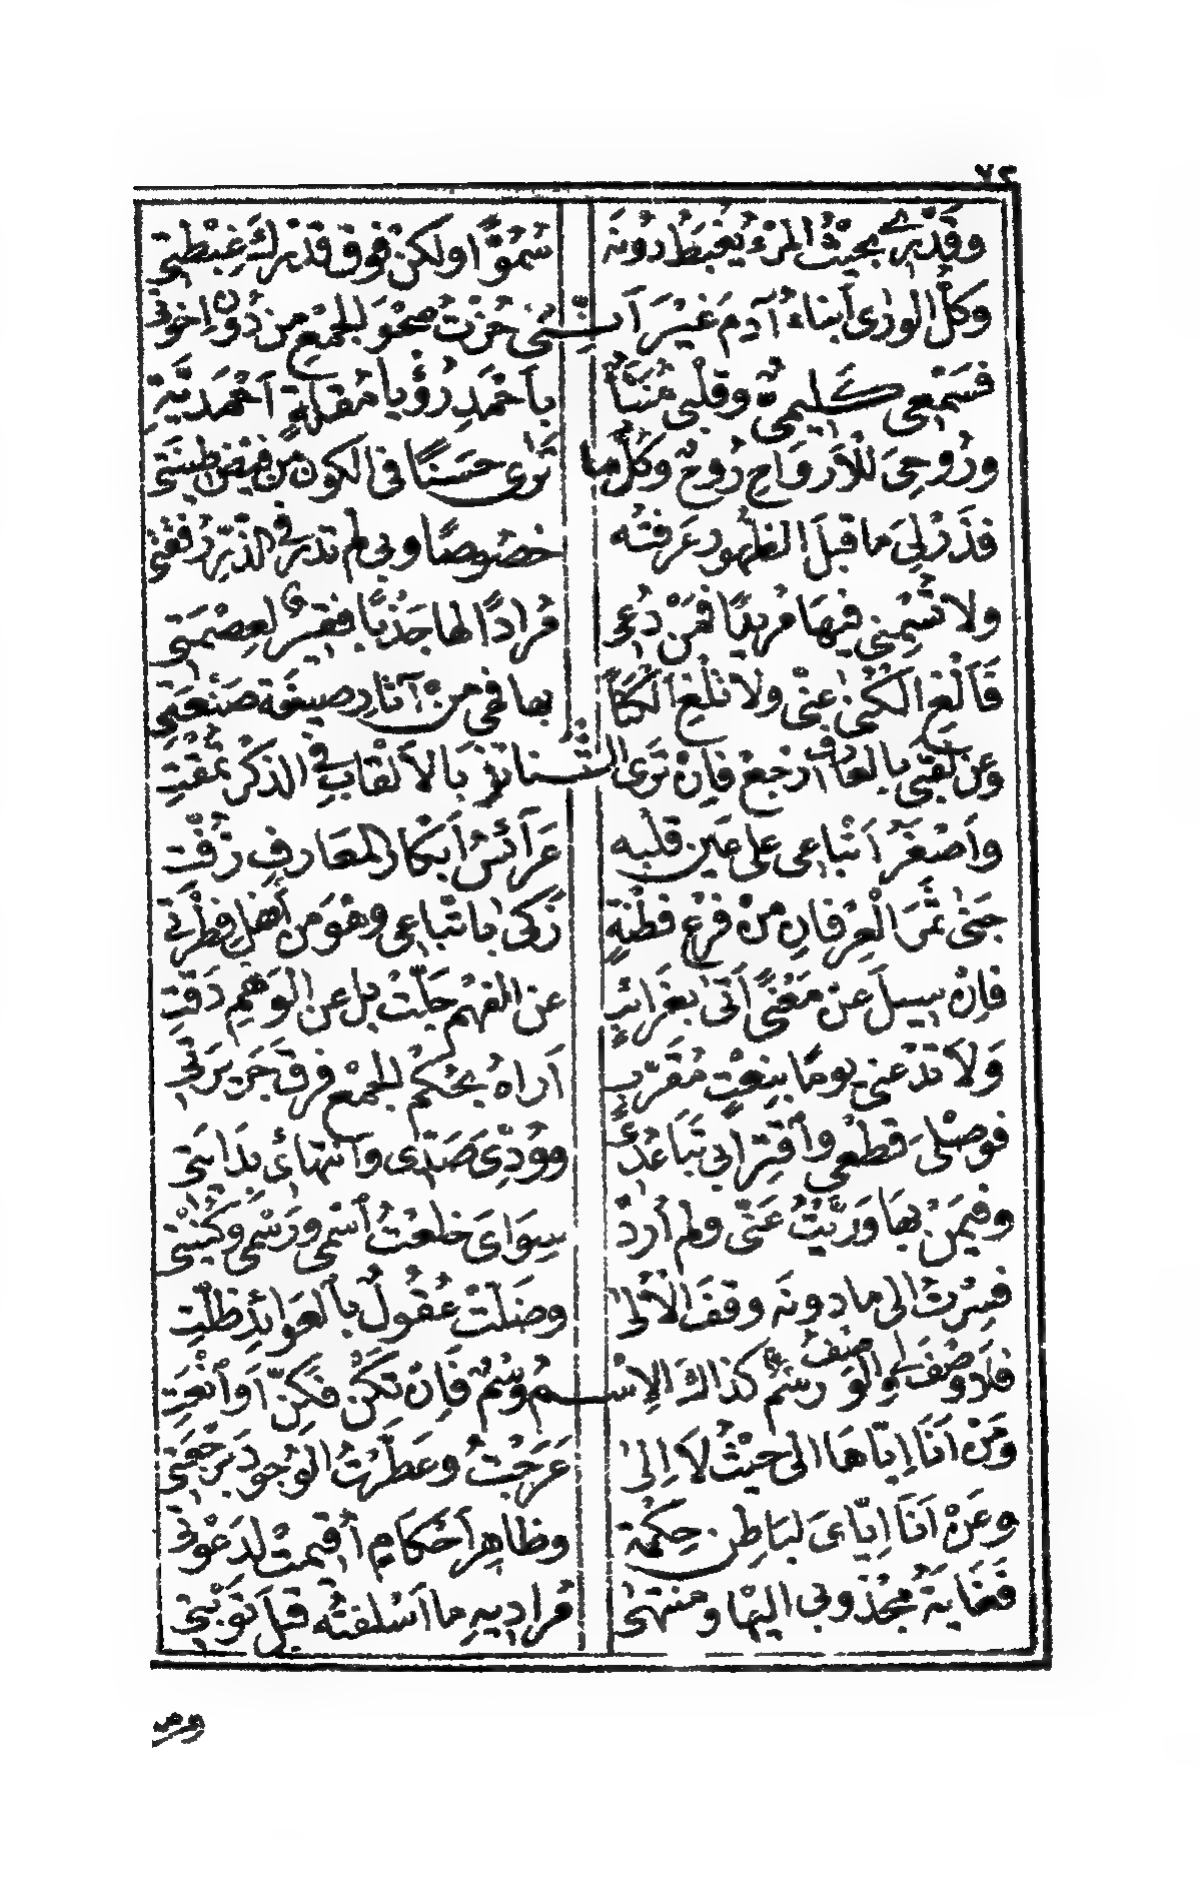 ٧٢
وقَدْرِي بحيثُ المرءُ يُغبَطُ دونَه سُمُوًّا ولكنْ فوق قدْرِكَ غِبْطتِي
وكلُّ الورٰى أبناءُ آدمَ غيرَ أنِّــنى حُزتُ صَحْوَ الجمْعِ من دُون إخوتى
فسَمْعِى كَليمىٌّ وقلْبى مُنَبَّأٌ بأحْمَدِ رُؤْيا مُقلَةٍ أحْمَديَّةِ
وروحِىَ للأرواحِ رُوحٌ وكلُّ ما تَرٰى حَسَنًا فى الكونِ من فَيْضِ طِينَتى
فذَرْ لِىَ ما قبلَ الظهورِ عَرَفتُه خصُوصًا وبى لم تدْرِ فى الذَّرِّ رُفْقَتى
ولا تُسْمِنى فيهَا مُريدًا فمَنْ دُعى مُرادًا لها جَذْبًا فقيرٌ لعِصْمَتى
فَألْغِ الكُنىٰ عنِّى ولا تلْغِ ألْكَنًا بها فهى منْ آثارِ صيغةِ صَنْعتِى
وعن لَقَبى بالعارفِ ارْجعْ فإنْ ترَى التَّــنابزَ بالألْقابِ فى الذكرْ تمْقَتِ
وأصْغَرُ أتْباعى على عَينِ قلبِه عَرَائسُ أبكارِ المعَارفِ زُفّتِ
جنىٰ ثمَرَ العِرْفانِ منْ فرْعِ فطْنةٍ زَكىٰ باتّباعى وهْوَ مِن أصْلِ فِطْرَتى
فإنْ سِيلَ عنْ مَعْنًى أتىٰ بغَرائبٍ عنِ الفهْمِ جلّتْ بل عن الوَهْمِ دَقتِ
ولَا تدْعنِى يومًا بنِعْتِ مُقَرَّبٍ أراهُ بحُكْمِ الجمْعِ فرقَ جَرِيرَتى
فوصْلىَ قطْعى واقْتِرَابى تَبَاعُدى ووُدِّىَ صَدِّى وانتهاءِى بَدَاءَتى
وفى مَنْ بها وَرَّيْتُ عَنّى ولم أرِدْ سِوَاىَ خلعْتُ اسْمى ورَسْمى وكُنْيتى
فسِرْتُ إلى ما دونَه وقفَ الأُلى وضَلّتْ عُقُولٌ بالعَوائدِ ظلّتِ
فلا وصْفَ لى والوصفُ رسْمٌ كذاكَ الإسْــمُ وسْمٌ فإنْ تكْنى فكَنِّ أو انْعَتِ
ومَنْ أنَا إيّاهَا إلى حيْثُ لَا إلى عَرَجْتُ وعَطّرْتُ الوُجودَ برَجْعَتى
وعَنْ أنَا إيّاىَ لبَاطِنِ حِكْمةٍ وظاهِرِ أحْكامٍ أُقيمتْ لدَعْوَتى
فغايَةُ مجْذُوبى إليْها ومنتهىٰ مُرادِيهِ ما أسْلفتُه قبلَ توْبتى